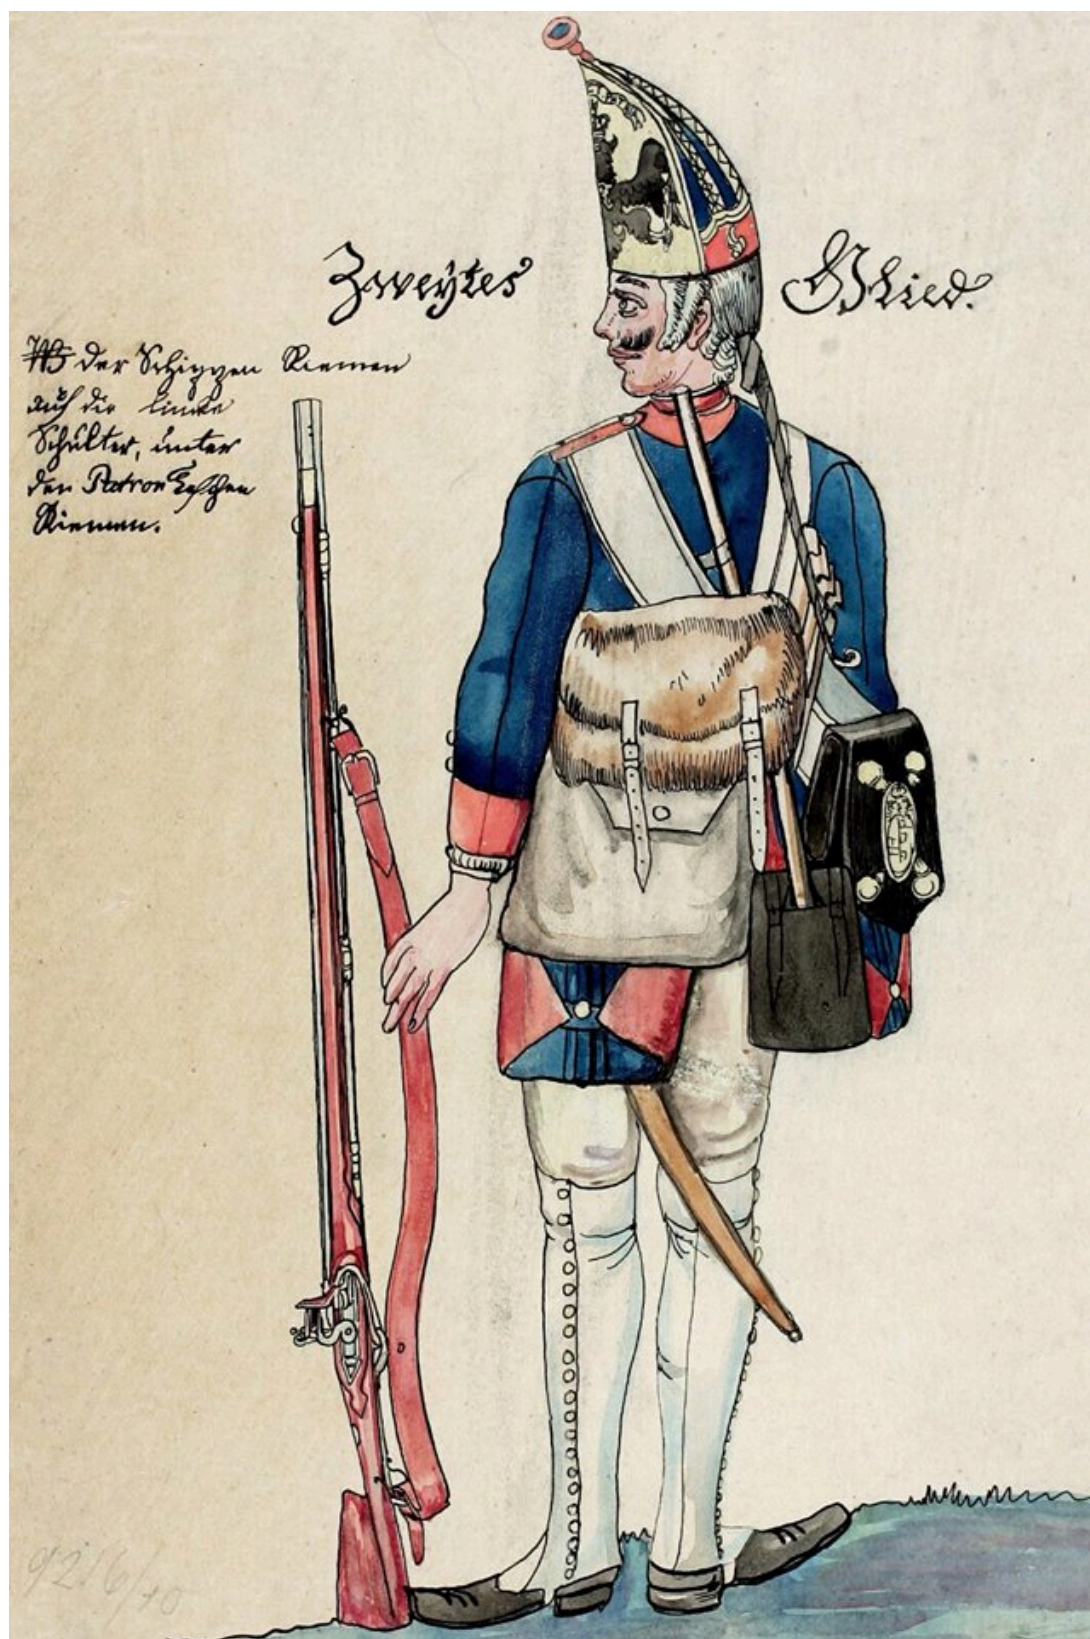 Zweytes Glied.
NB der Schippen Riemen
auf die lincke
Schulter, unter
den Patron Taschen
Riemen.
9216/10